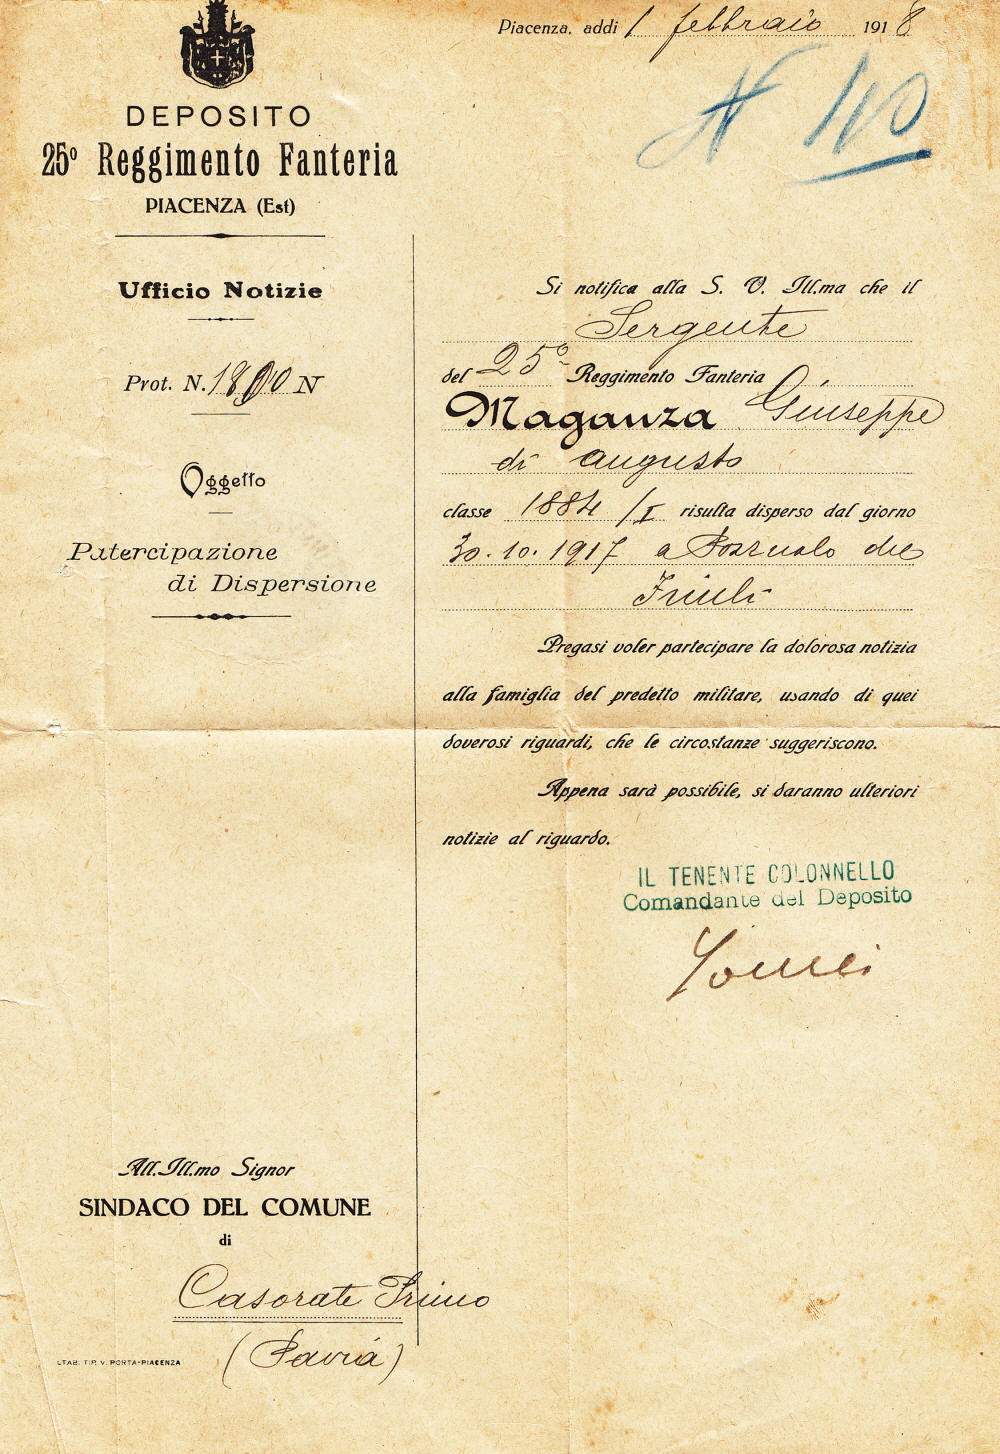 Piacenza, addì 1 febbraio 1918
N 110
DEPOSITO
25º Reggimento Fanteria
PIACENZA (Est)
Ufficio Notizie
Prot. N. 1800 N
Oggetto
Patercipazione
di Dispersione
Si notifica alla S. V. Ill.ma che il
Sergente
del 25º Reggimento Fanteria
Maganza Giuseppe
di Augusto
classe 1884 /I risulta disperso dal giorno
30.10.1917 a Pozzuolo del
Friuli
Pregasi voler partecipare la dolorosa notizia
alla famiglia del predetto militare, usando di quei
doverosi riguardi, che le circostanze suggeriscono.
Appena sarà possibile, si daranno ulteriori
notizie al riguardo.
IL TENENTE COLONNELLO
Comandante del Deposito
All.Ill.mo Signor
SINDACO DEL COMUNE
di
Casorate Primo
(Pavia)
STAB. TIP. V. PORTA-PIACENZA